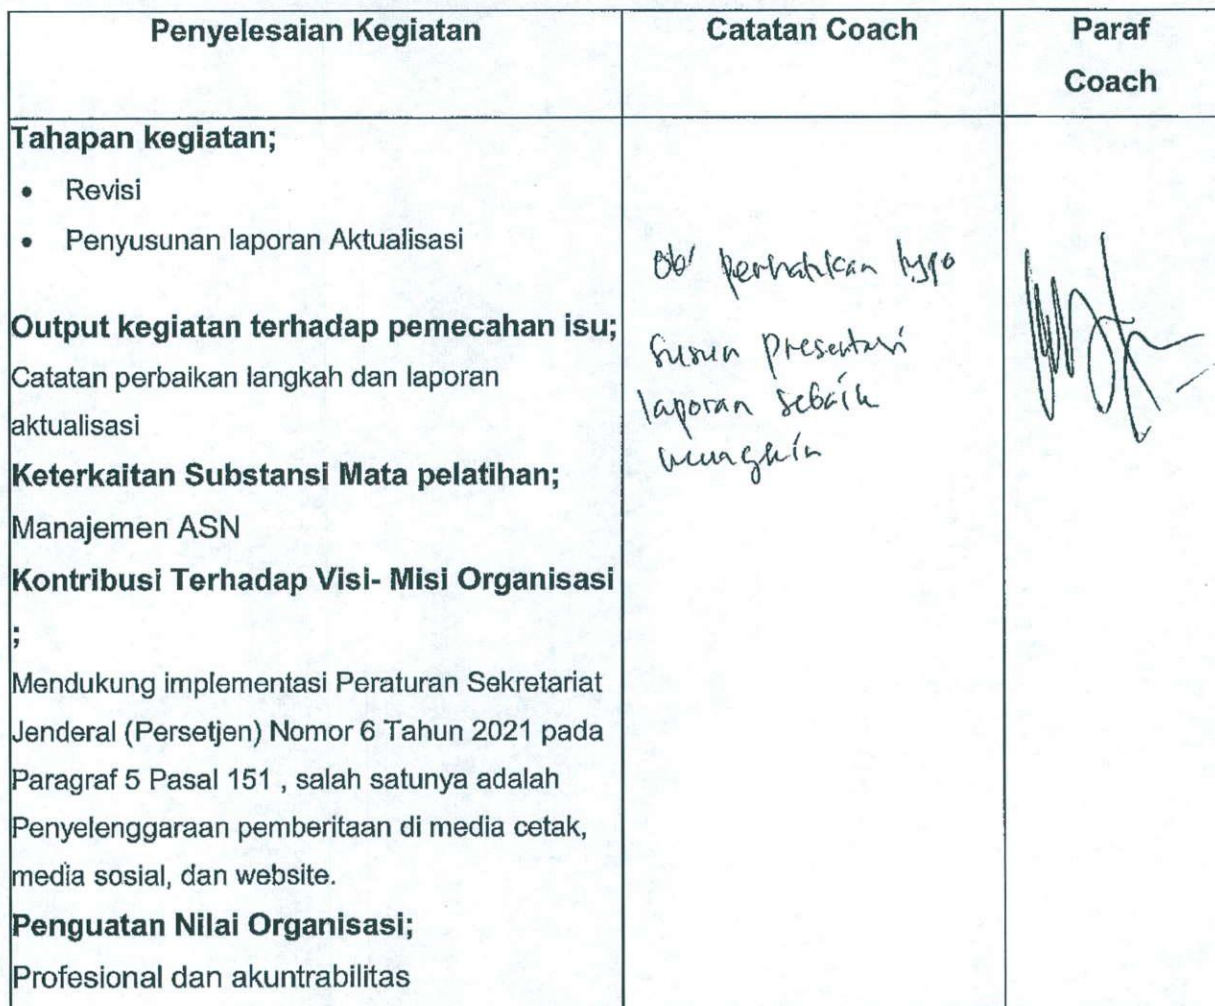 Penyelesaian Kegiatan
Catatan Coach
Paraf
Coach
Tahapan kegiatan;
• Revisi
• Penyusunan laporan Aktualisasi
Output kegiatan terhadap pemecahan isu;
Catatan perbaikan langkah dan laporan
aktualisasi
Keterkaitan Substansi Mata pelatihan;
Manajemen ASN
Kontribusi Terhadap Visi- Misi Organisasi
;
Mendukung implementasi Peraturan Sekretariat
Jenderal (Persetjen) Nomor 6 Tahun 2021 pada
Paragraf 5 Pasal 151 , salah satunya adalah
Penyelenggaraan pemberitaan di media cetak,
media sosial, dan website.
Penguatan Nilai Organisasi;
Profesional dan akuntrabilitas
perhatikan typo
susun presentasi
laporan sebaik
mungkin